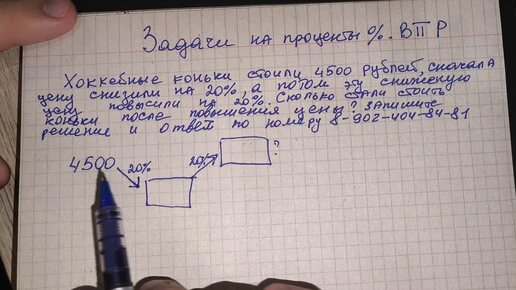 Задачи на проценты %. ВПР
Хоккейные коньки стоили 4500 рублей, сначала
цену снизили на 20%, а потом эту сниженую
цену повысили на 20%. Сколько стали стоить
коньки после повышения цены? Запишите
решение и ответ по номеру 8-902-404-84-81
4500 20% 20% ?